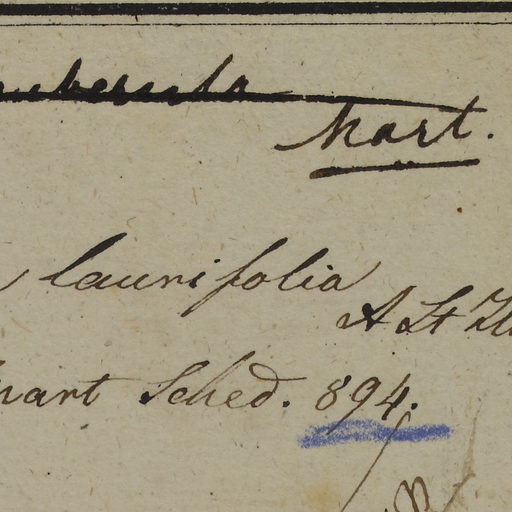 Mart.
laurifolia
A St
Mart Sched. 894.